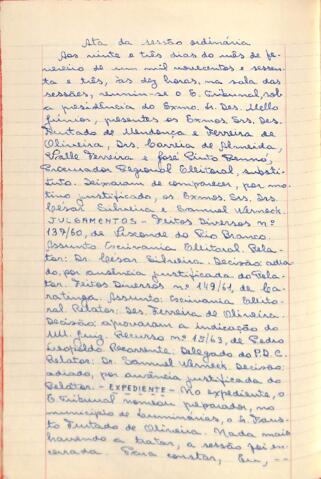 Ata da sessão ordinária
Aos vinte e três dias do mês de fe-
vereiro de um mil novecentos e sessen-
ta e três, às dez horas, na sala das
sessões, reuniu-se o E. Tribunal, sob
a presidência do Exmo. Sr. Des. Mello
Júnior, presentes os Exmos. Srs. Des.
Furtado de Mendonça e Ferreira de
Oliveira, Drs. Correia de Almeida,
Valle Ferreira e José Pinto Renno,
Procurador Regional Eleitoral, substi-
tuto. Deixaram de comparecer, por mo-
tivo justificado, os Exmos. Srs. Drs.
César Silveira e Samuel Werneck.
JULGAMENTOS - Feitos Diversos nº
137/60, de Visconde do Rio Branco.
Assunto: Escrivania Eleitoral. Rela-
tor: Dr. César Silveira. Decisão: adia-
do, por ausência justificada do Rela-
tor. Feitos Diversos nº 149/61, de Ca-
ratinga. Assunto: Escrivania Eleito-
ral. Relator: Des. Ferreira de Oliveira.
Decisão: aprovaram a indicação do
MM. Juiz. Recurso nº 15/63, de Pedro
Leopoldo. Recorrente: Delegado do P.D.C.
Relator: Dr. Samuel Werneck. Decisão:
adiado, por ausência justificada do
Relator. - EXPEDIENTE - No expediente, o
E. Tribunal nomeou preparador, no
município de Luminárias, o Sr. Faus-
to Furtado de Oliveira. Nada mais
havendo a tratar, a sessão foi en-
cerrada. Para constar, Eu, --